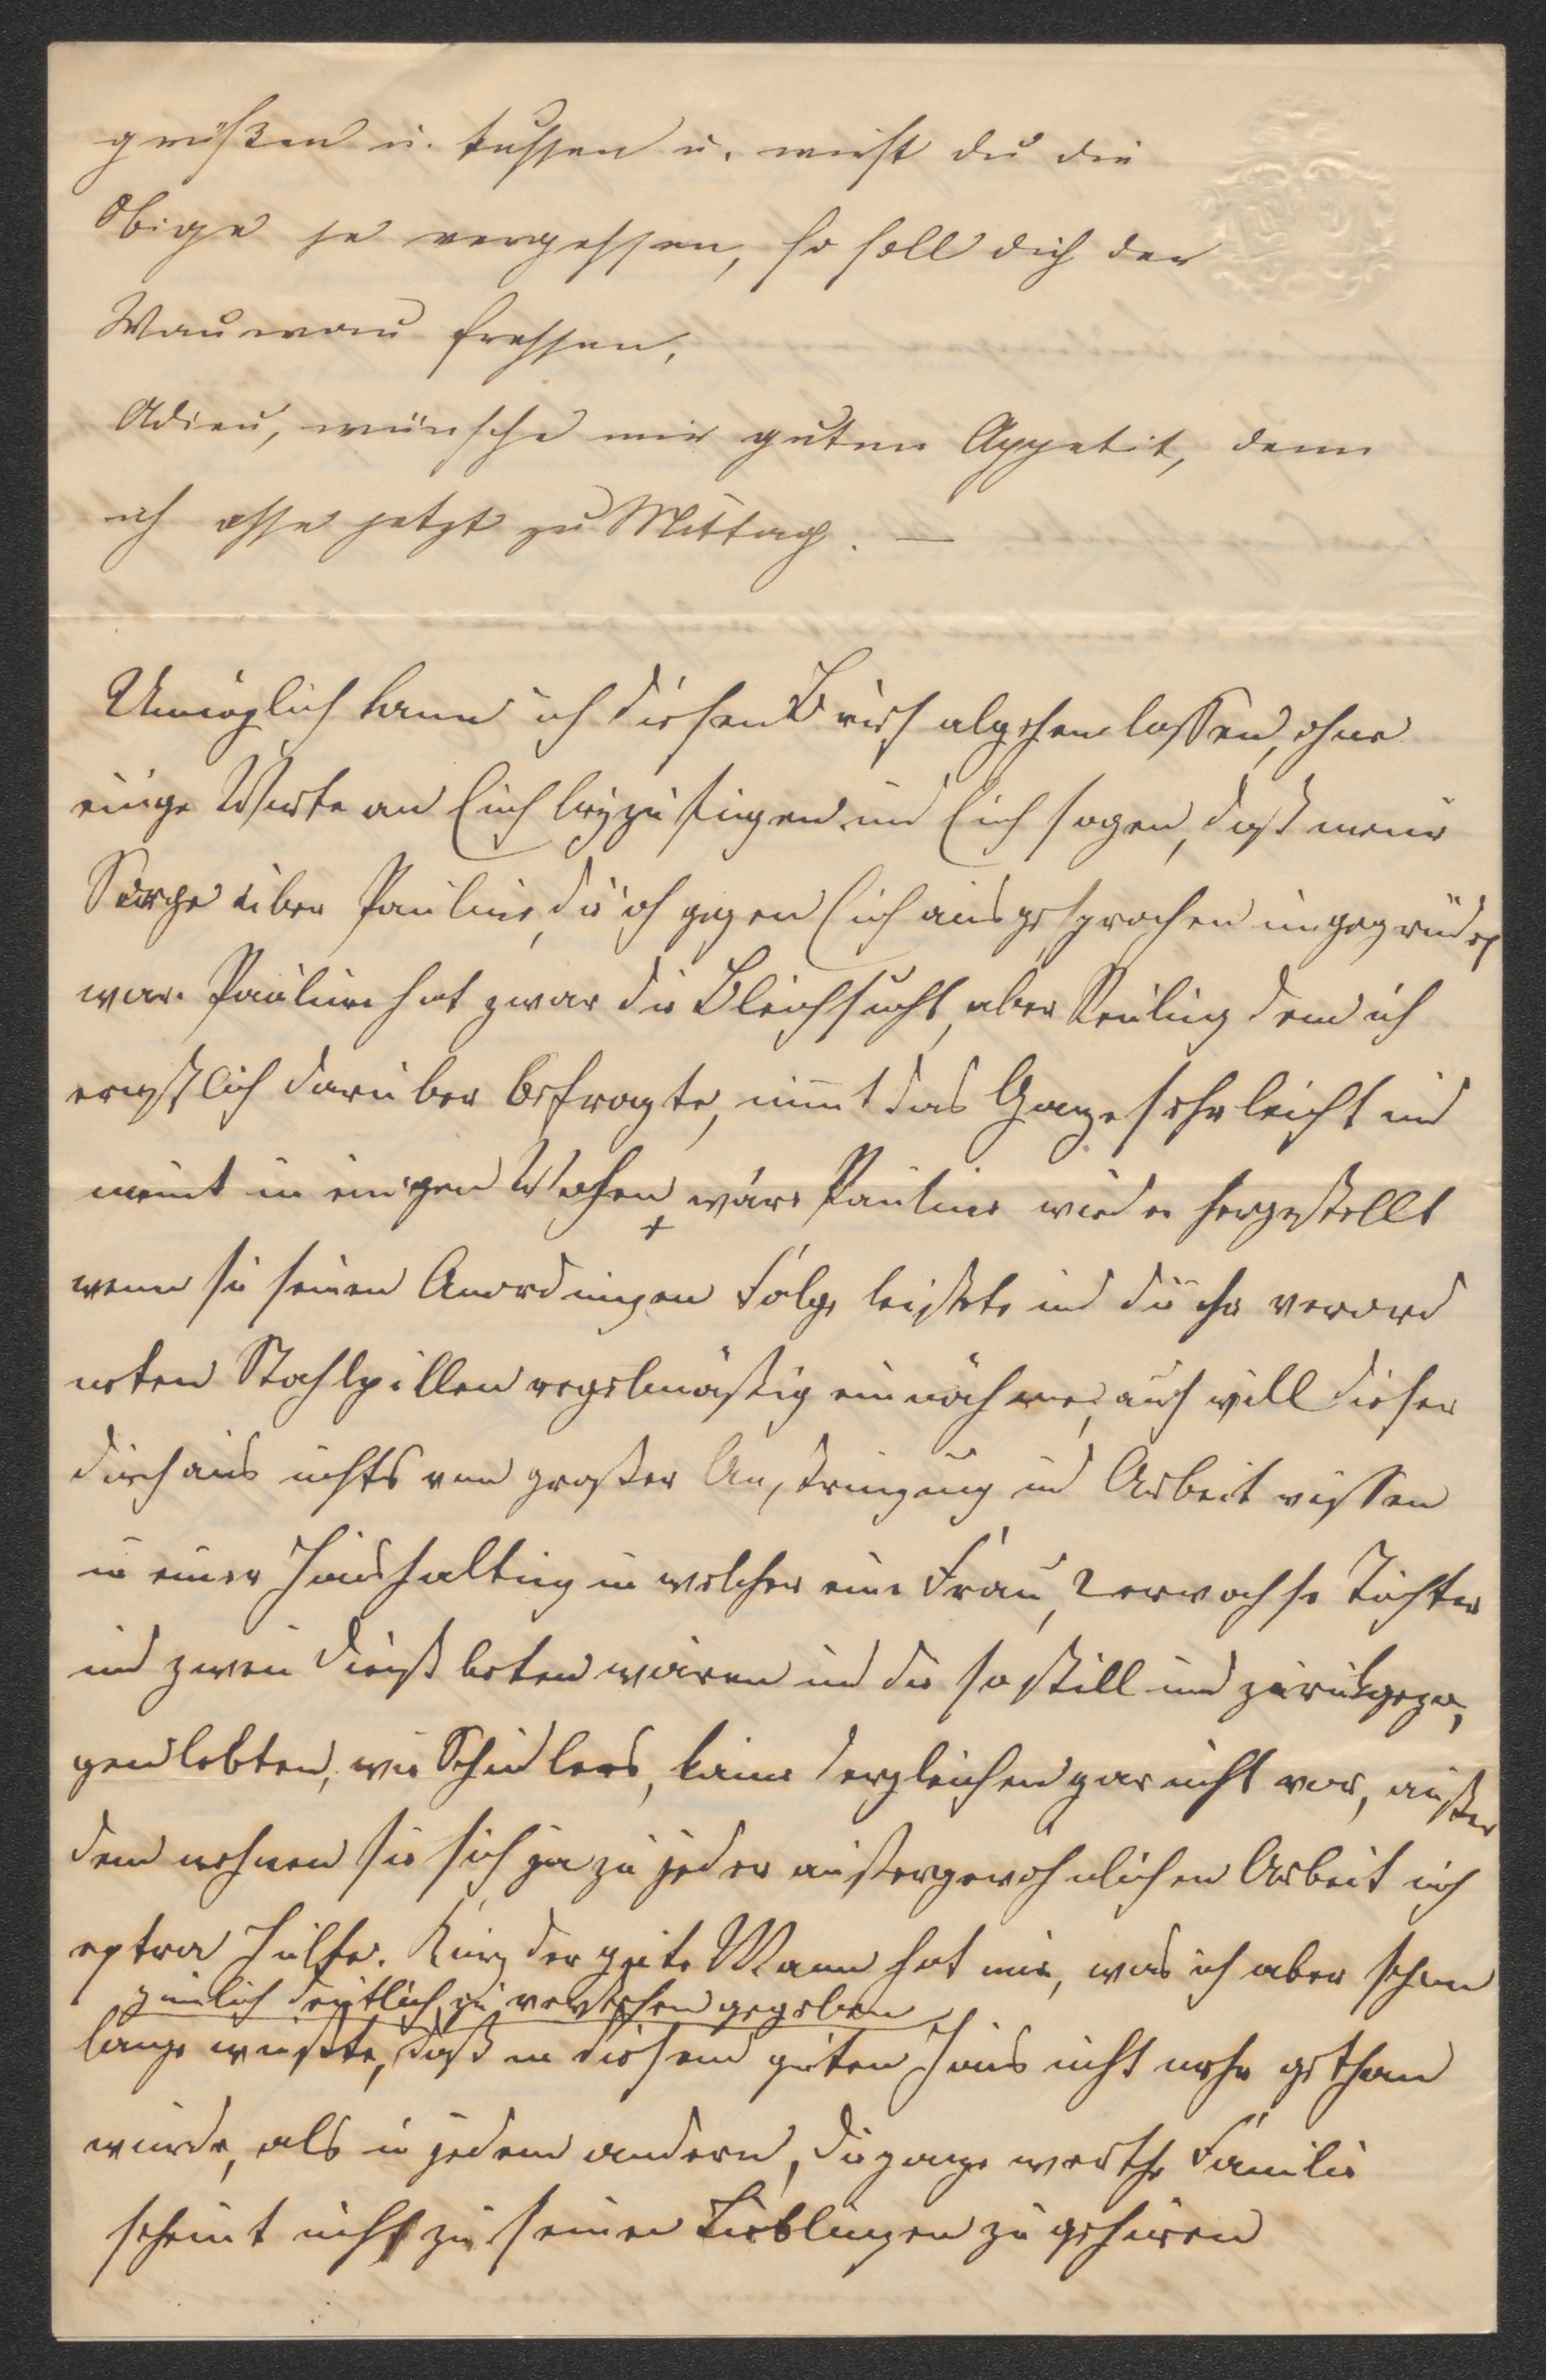 grüßen u. küssen u. wirst du die
Obige je vergessen, so soll dich der
Wauwau fressen,
Adieu, wünsche mir guten Appetit, denn
ich esse jetzt zu Mittag. —
Unmöglich kann ich diesen Brief abgehen lassen, ohne
einige Worte an Euch beyzufügen und Euch sagen, daß meine
Sorge über Pauline, die ich gegen Euch ausgesprochen ungegründet
war. Pauline hat zwar die Bleichsucht, aber dem ich
ernstlich darüber befragte, nimt das Ganze sehr leicht und
meint in einigen Wochen wäre Pauline wieder hergestellt
wenn sie seinen Anordnungen Folge leistete und die ihr verord
neten Stahlpillen regelmäßig einnähme, auch will dieser
durchaus nichts von großer Anstrengung und Arbeit wissen
in einer Haushaltung in welcher eine Frau, 2 erwachse Töchter
und zwei Dienstboten wären und die so still und zurükgezo,
gen lebten, wie Schindlers, käme dergleichen gar nicht vor, außer
dem nehmen sie sich ja zu jeder außergewöhnlichen Arbeit noch
extra Hülfe. Kurz der gute Mann hat mir, was ich aber schon
zimlich deutlich zu verstehen gegeben
lange wußte, daß in diesem guten Haus nicht mehr gethan
würde, als in jedem andern, die ganze werthe Familie
scheint nicht zu seinen Lieblingen zu gehören